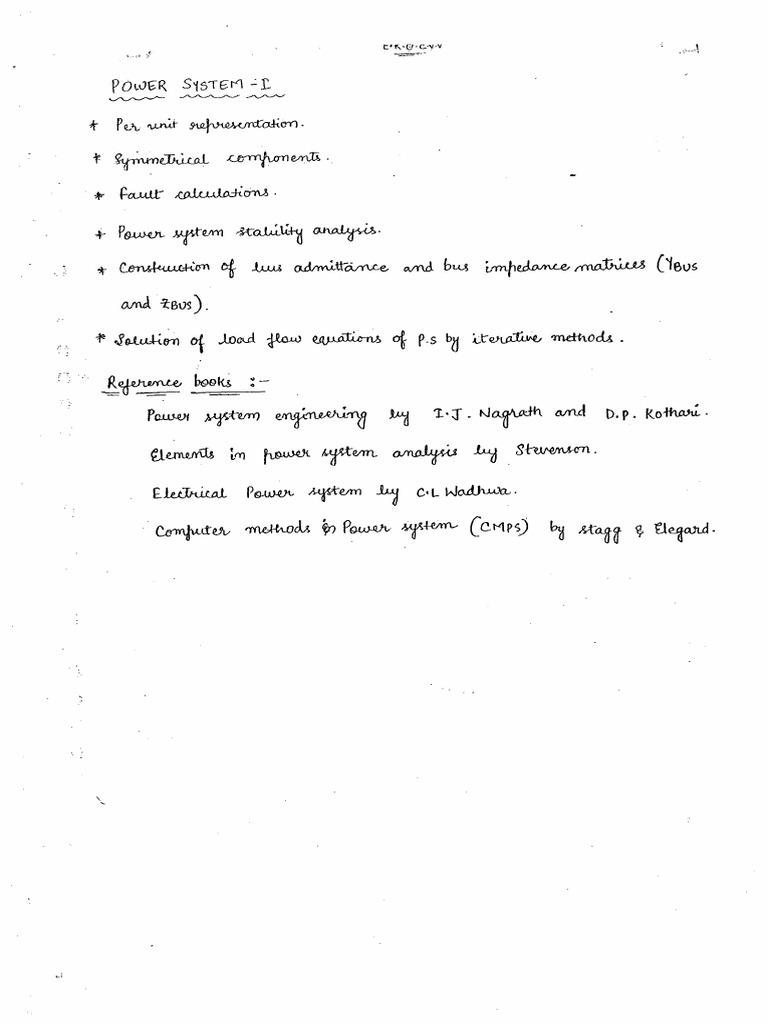 POWER SYSTEM-I
* Per unit representation.
* Symmetrical components.
* Fault calculations.
* Power system stability analysis.
* Construction of bus admittance and bus impedance matrices (YBUS
and ZBUS).
* Solution of load flow equations of P.S by iterative methods.
Reference books :-
Power system engineering by I.J. Nagrath and D.P. Kothari.
Elements in power system analysis by Stevenson.
Electrical Power system by C.L Wadhwa.
Computer methods in Power system (CMPS) by stagg & Elegard.